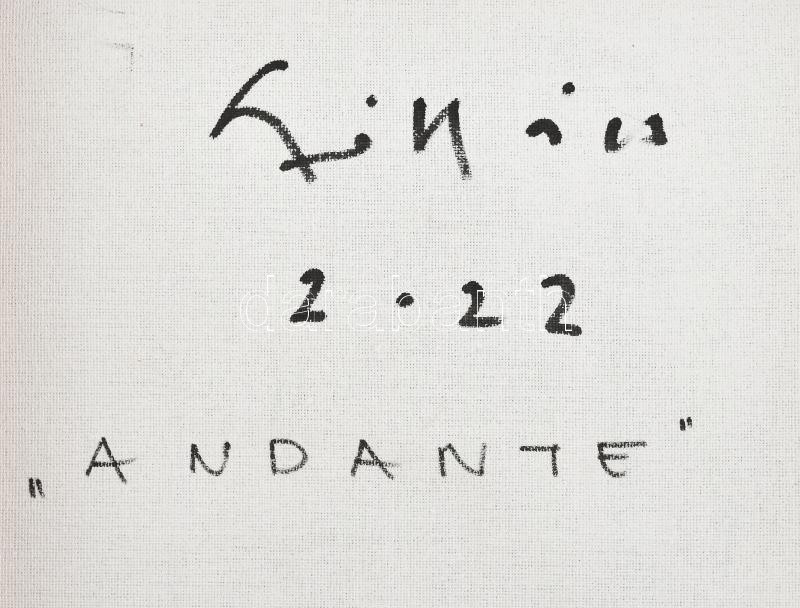 2.22
„ANDANTE"
darabanth